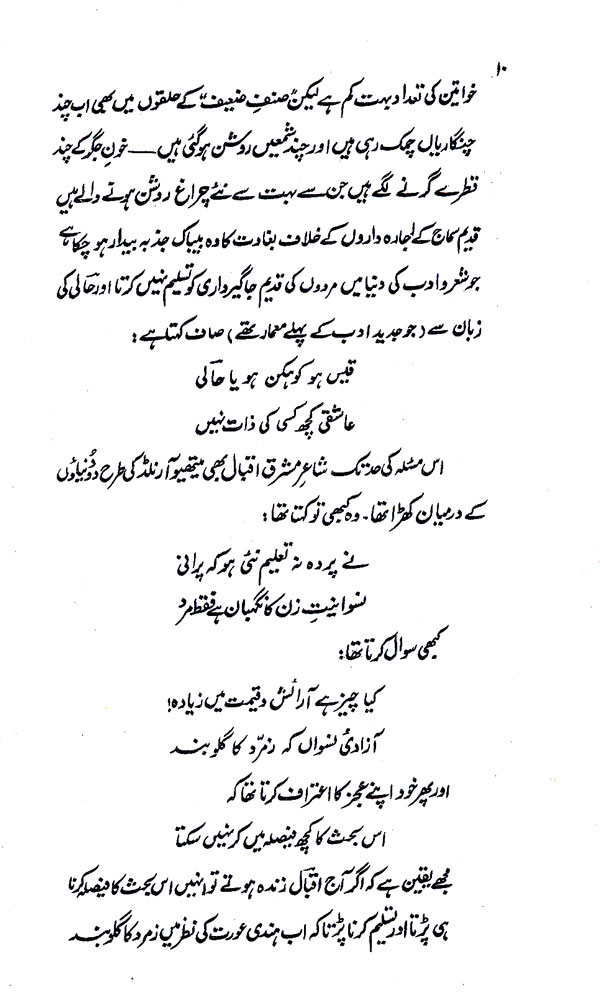 ۱۰
خواتین کی تعداد بہت کم ہے لیکن "صنفِ ضعیف" کے حلقوں میں بھی اب چند
چنگاریاں چمک رہی ہیں اور چند شمعیں روشن ہو گئی ہیں — خونِ جگر کے چند
قطرے گرنے لگے ہیں جن سے بہت سے نئے چراغ روشن ہونے والے ہیں
قدیم سماج کے اجارہ داروں کے خلاف بغاوت کا وہ بیباک جذبہ بیدار ہو چکا ہے
جو شعر و ادب کی دنیا میں مردوں کی قدیم جاگیرداری کو تسلیم نہیں کرتا اور حالی کی
زبان سے (جو جدید ادب کے پہلے معمار تھے) صاف کہتا ہے :
قیس ہو کوہکن ہو یا حالی
عاشقی کچھ کسی کی ذات نہیں
اس مسئلہ کی حد تک شاعرِ مشرق اقبال بھی میتھیو آرنلڈ کی طرح دو دُنیاؤں
کے درمیان کھڑا تھا۔ وہ کبھی تو کہتا تھا :
نے پردہ نہ تعلیم نئی ہو کہ پرانی
نسوانیتِ زن کا نگہبان ہے فقط مرد
کبھی سوال کرتا تھا :
کیا چیز ہے آرائش و قیمت میں زیادہ!
آزادئ نسواں کہ زمرّد کا گلوبند
اور پھر خود اپنے عجز کا اعتراف کرتا تھا کہ
اس بحث کا کچھ فیصلہ میں کر نہیں سکتا
مجھے یقین ہے کہ اگر آج اقبال زندہ ہوتے تو انہیں اس بحث کا فیصلہ کرنا
ہی پڑتا اور تسلیم کرنا پڑتا کہ اب ہندی عورت کی نظر میں زمرد کا گلوبند